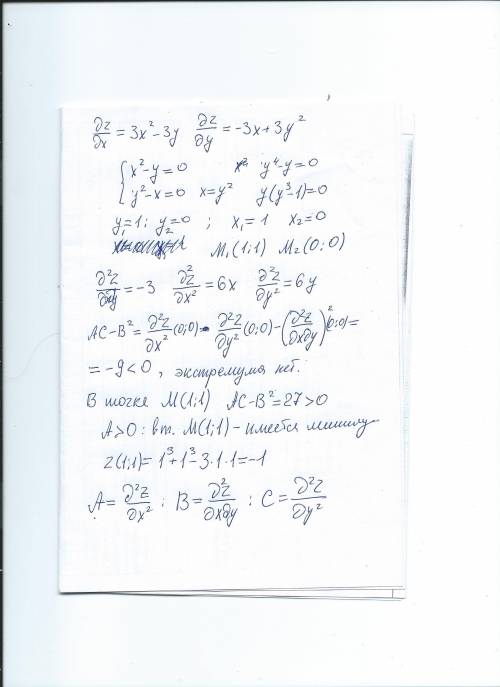 ∂z/∂x = 3x² - 3y ∂z/∂y = -3x + 3y²
{ x² - y = 0 y⁴ - y = 0
{ y² - x = 0 x = y² y(y³ - 1) = 0
y₁ = 1; y₂ = 0 ; x₁ = 1 x₂ = 0
M₁(1;1) M₂(0;0)
∂²z/∂x∂y = -3 ∂²z/∂x² = 6x ∂²z/∂y² = 6y
AC - B² = ∂²z/∂x² (0;0) · ∂²z/∂y² (0;0) - (∂²z/∂x∂y)² (0;0) =
= -9 < 0, экстремума нет.
В точке M(1;1) AC - B² = 27 > 0
A > 0 : в т. M(1;1) - имеется миниму
z(1;1) = 1³ + 1³ - 3·1·1 = -1
A = ∂²z/∂x² ; B = ∂²z/∂x∂y ; C = ∂²z/∂y²